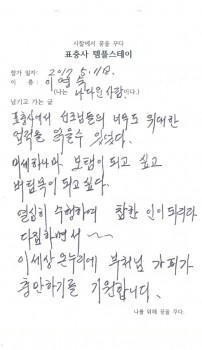 사찰에서 꿈을 꾸다
표충사 템플스테이
참가 일자: 2017. 5. 11.
이 름: 이
(나는 나다운 사람이다.)
남기고 가는 글
표충사에서 선조님들의 너무도 위대한
업적을 읽을수 있었다.
미세하나마 보탬이 되고 싶고
버팀목이 되고 싶다.
열심히 수행하여 참한 인이 되리라
다짐하면서 ~~
이세상 온누리에 부처님 가피가
충만하기를 기원합니다.
나를 위해 꿈을 꾸다.